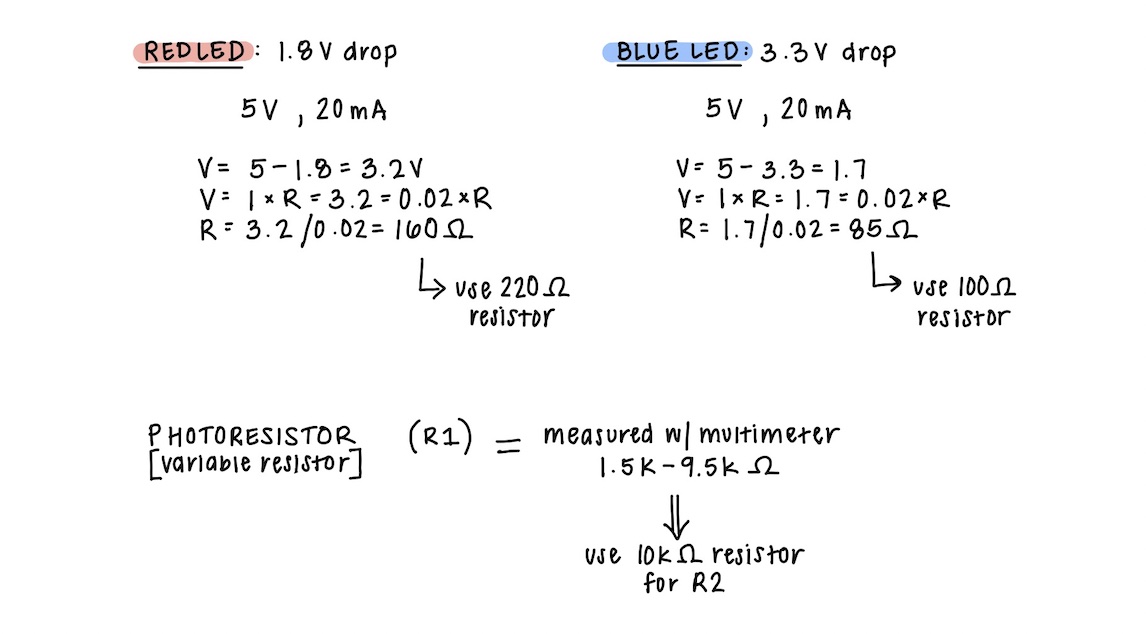 RED LED: 1.8V drop
5V , 20mA
V= 5-1.8=3.2V
V= I×R=3.2=0.02×R
R= 3.2/0.02=160Ω
↳ use 220Ω
resistor
BLUE LED: 3.3V drop
5V , 20mA
V= 5-3.3=1.7
V= I×R=1.7=0.02×R
R= 1.7/0.02=85Ω
↳ use 100Ω
resistor
PHOTORESISTOR (R1) = measured w/ multimeter
[variable resistor] 1.5K-9.5K Ω
⇓
use 10KΩ resistor
for R2